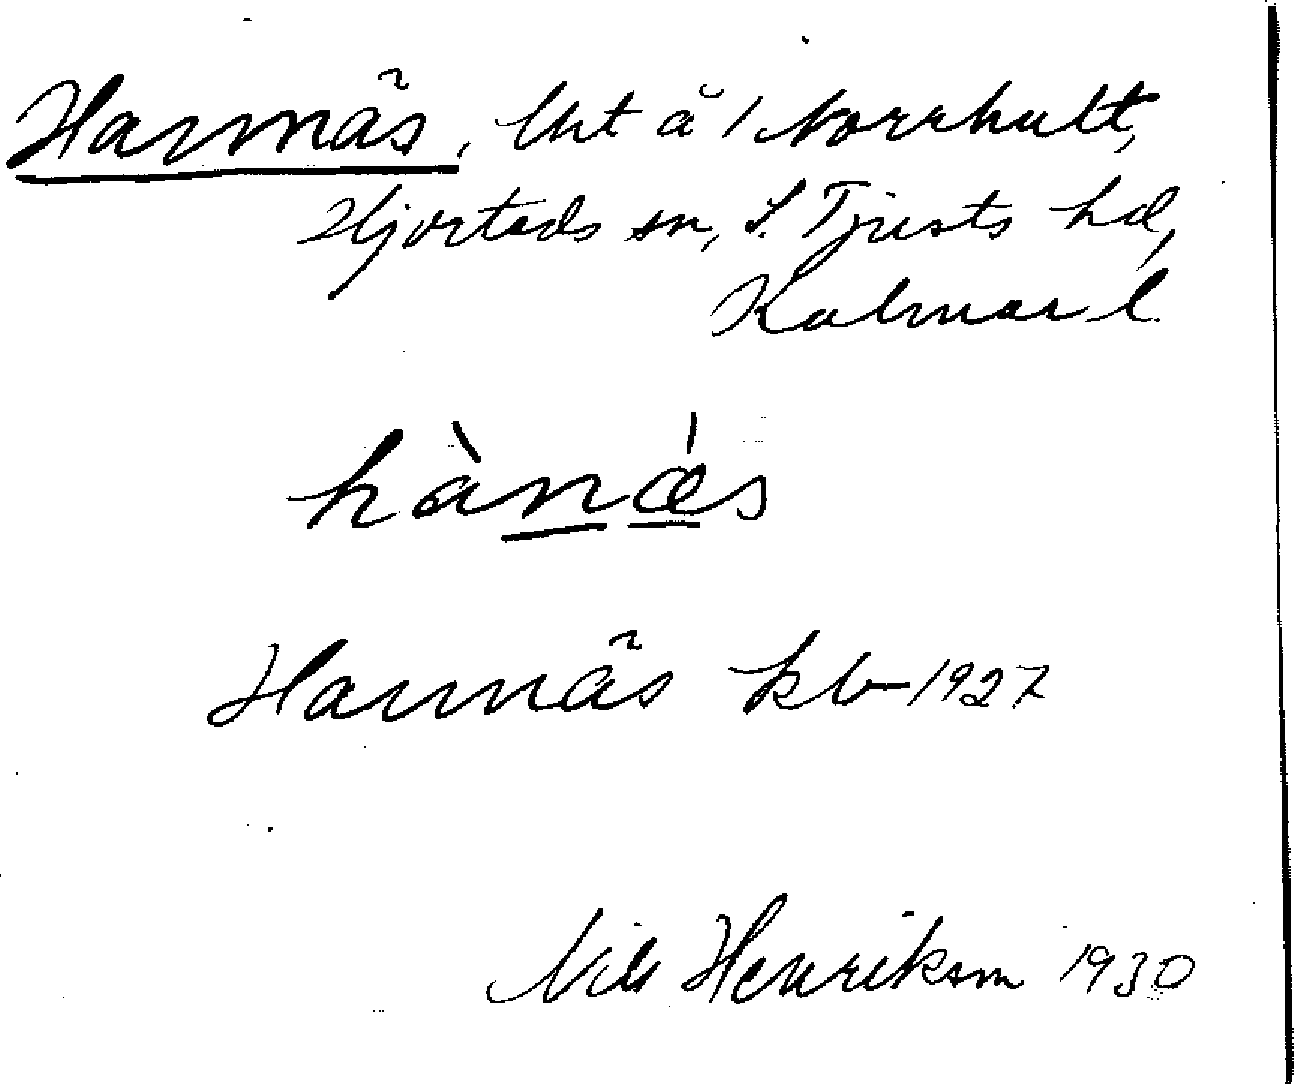 Harmäs, lht å 1 Norrhult,
Hjorteds sn, S. Tjusts hd,
Kalmar l.
hànǽs
Harmäs kb 1927
Nils Henriksson 1930